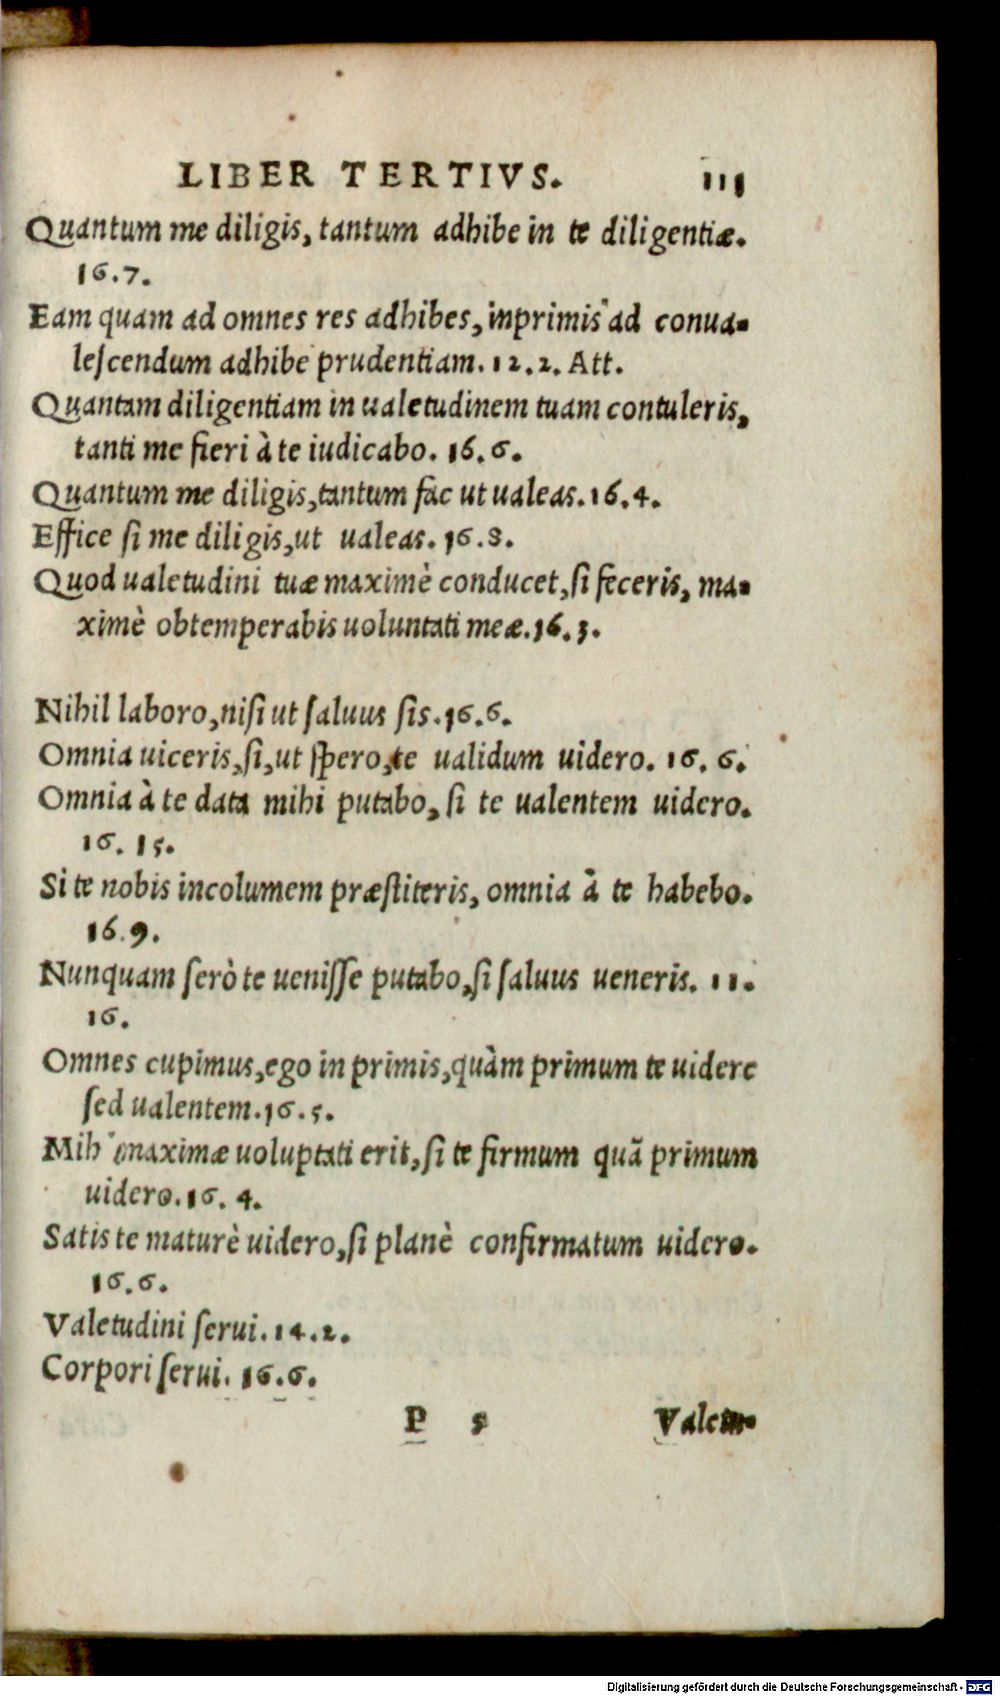 LIBER TERTIVS. 111
Quantum me diligis, tantum adhibe in te diligentiæ.
16.7.
Eam quam ad omnes res adhibes, inprimis ad conua-
leſcendum adhibe prudentiam. 12.2. Att.
Quantam diligentiam in ualetudinem tuam contuleris,
tanti me fieri à te iudicabo. 16.6.
Quantum me diligis, tantum fac ut ualeas. 16.4.
Effice ſi me diligis, ut ualeas. 16.8.
Quod ualetudini tuæ maximè conducet, ſi feceris, ma-
ximè obtemperabis uoluntati meæ. 16.3.
Nihil laboro, niſi ut ſaluus ſis. 16.6.
Omnia uiceris, ſi, ut ſpero, te ualidum uidero. 16. 6.
Omnia à te data mihi putabo, ſi te ualentem uidero.
16. 15.
Si te nobis incolumem præſtiteris, omnia à te habebo.
16.9.
Nunquam ſerò te ueniſſe putabo, ſi ſaluus ueneris. 11.
16.
Omnes cupimus, ego in primis, quàm primum te uidere
ſed ualentem. 16.5.
Mih maximæ uoluptati erit, ſi te firmum quã primum
uidero. 16. 4.
Satis te maturè uidero, ſi planè confirmatum uidero.
16.6.
Valetudini ſerui. 14.2.
Corpori ſerui. 16.6.
P 5 Valetu-
Digitalisierung gefördert durch die Deutsche Forschungsgemeinschaft - DFG